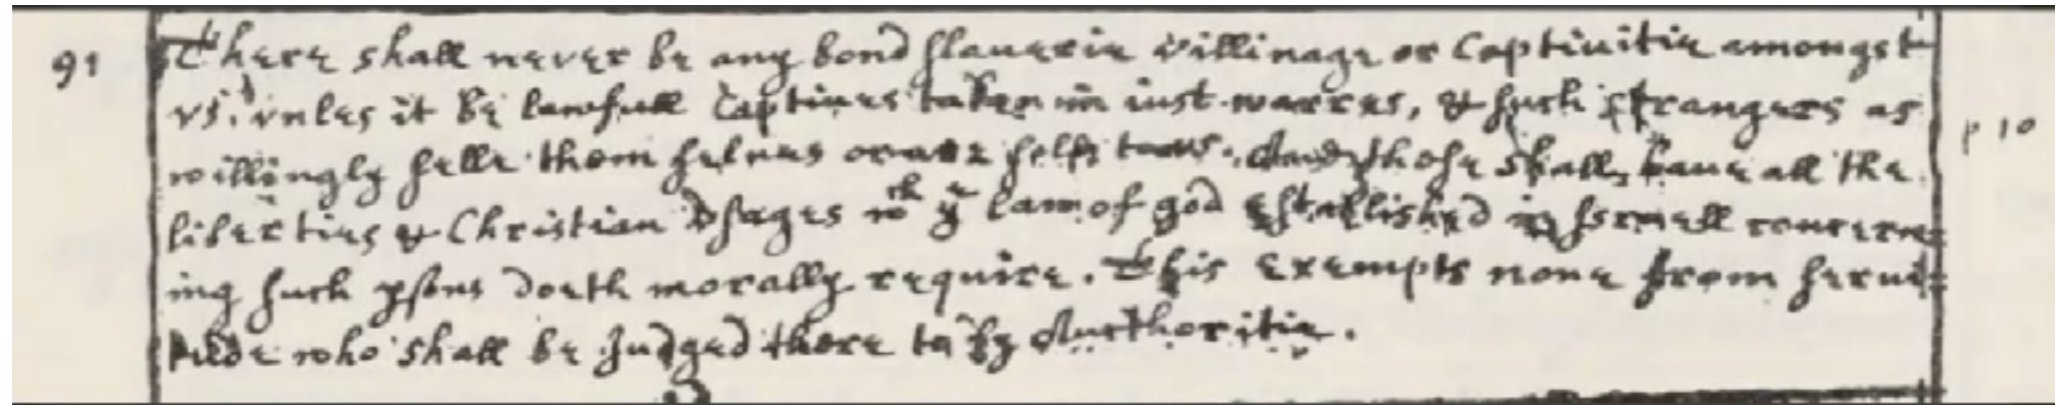 91 There shall never be any bond slauerie villinage or Captiuitie amongst
vs. vnles it be lawfull Captiues taken in iust warres, & such strangers as p 10
willingly selle themselues or are solde to us. And those shall haue all the
liberties & Christian vsages wch ye law of god established in Israell concern=
ing such psons doeth morally require. This exempts none from serui=
tude who shall be Judged there to by Authoritie.